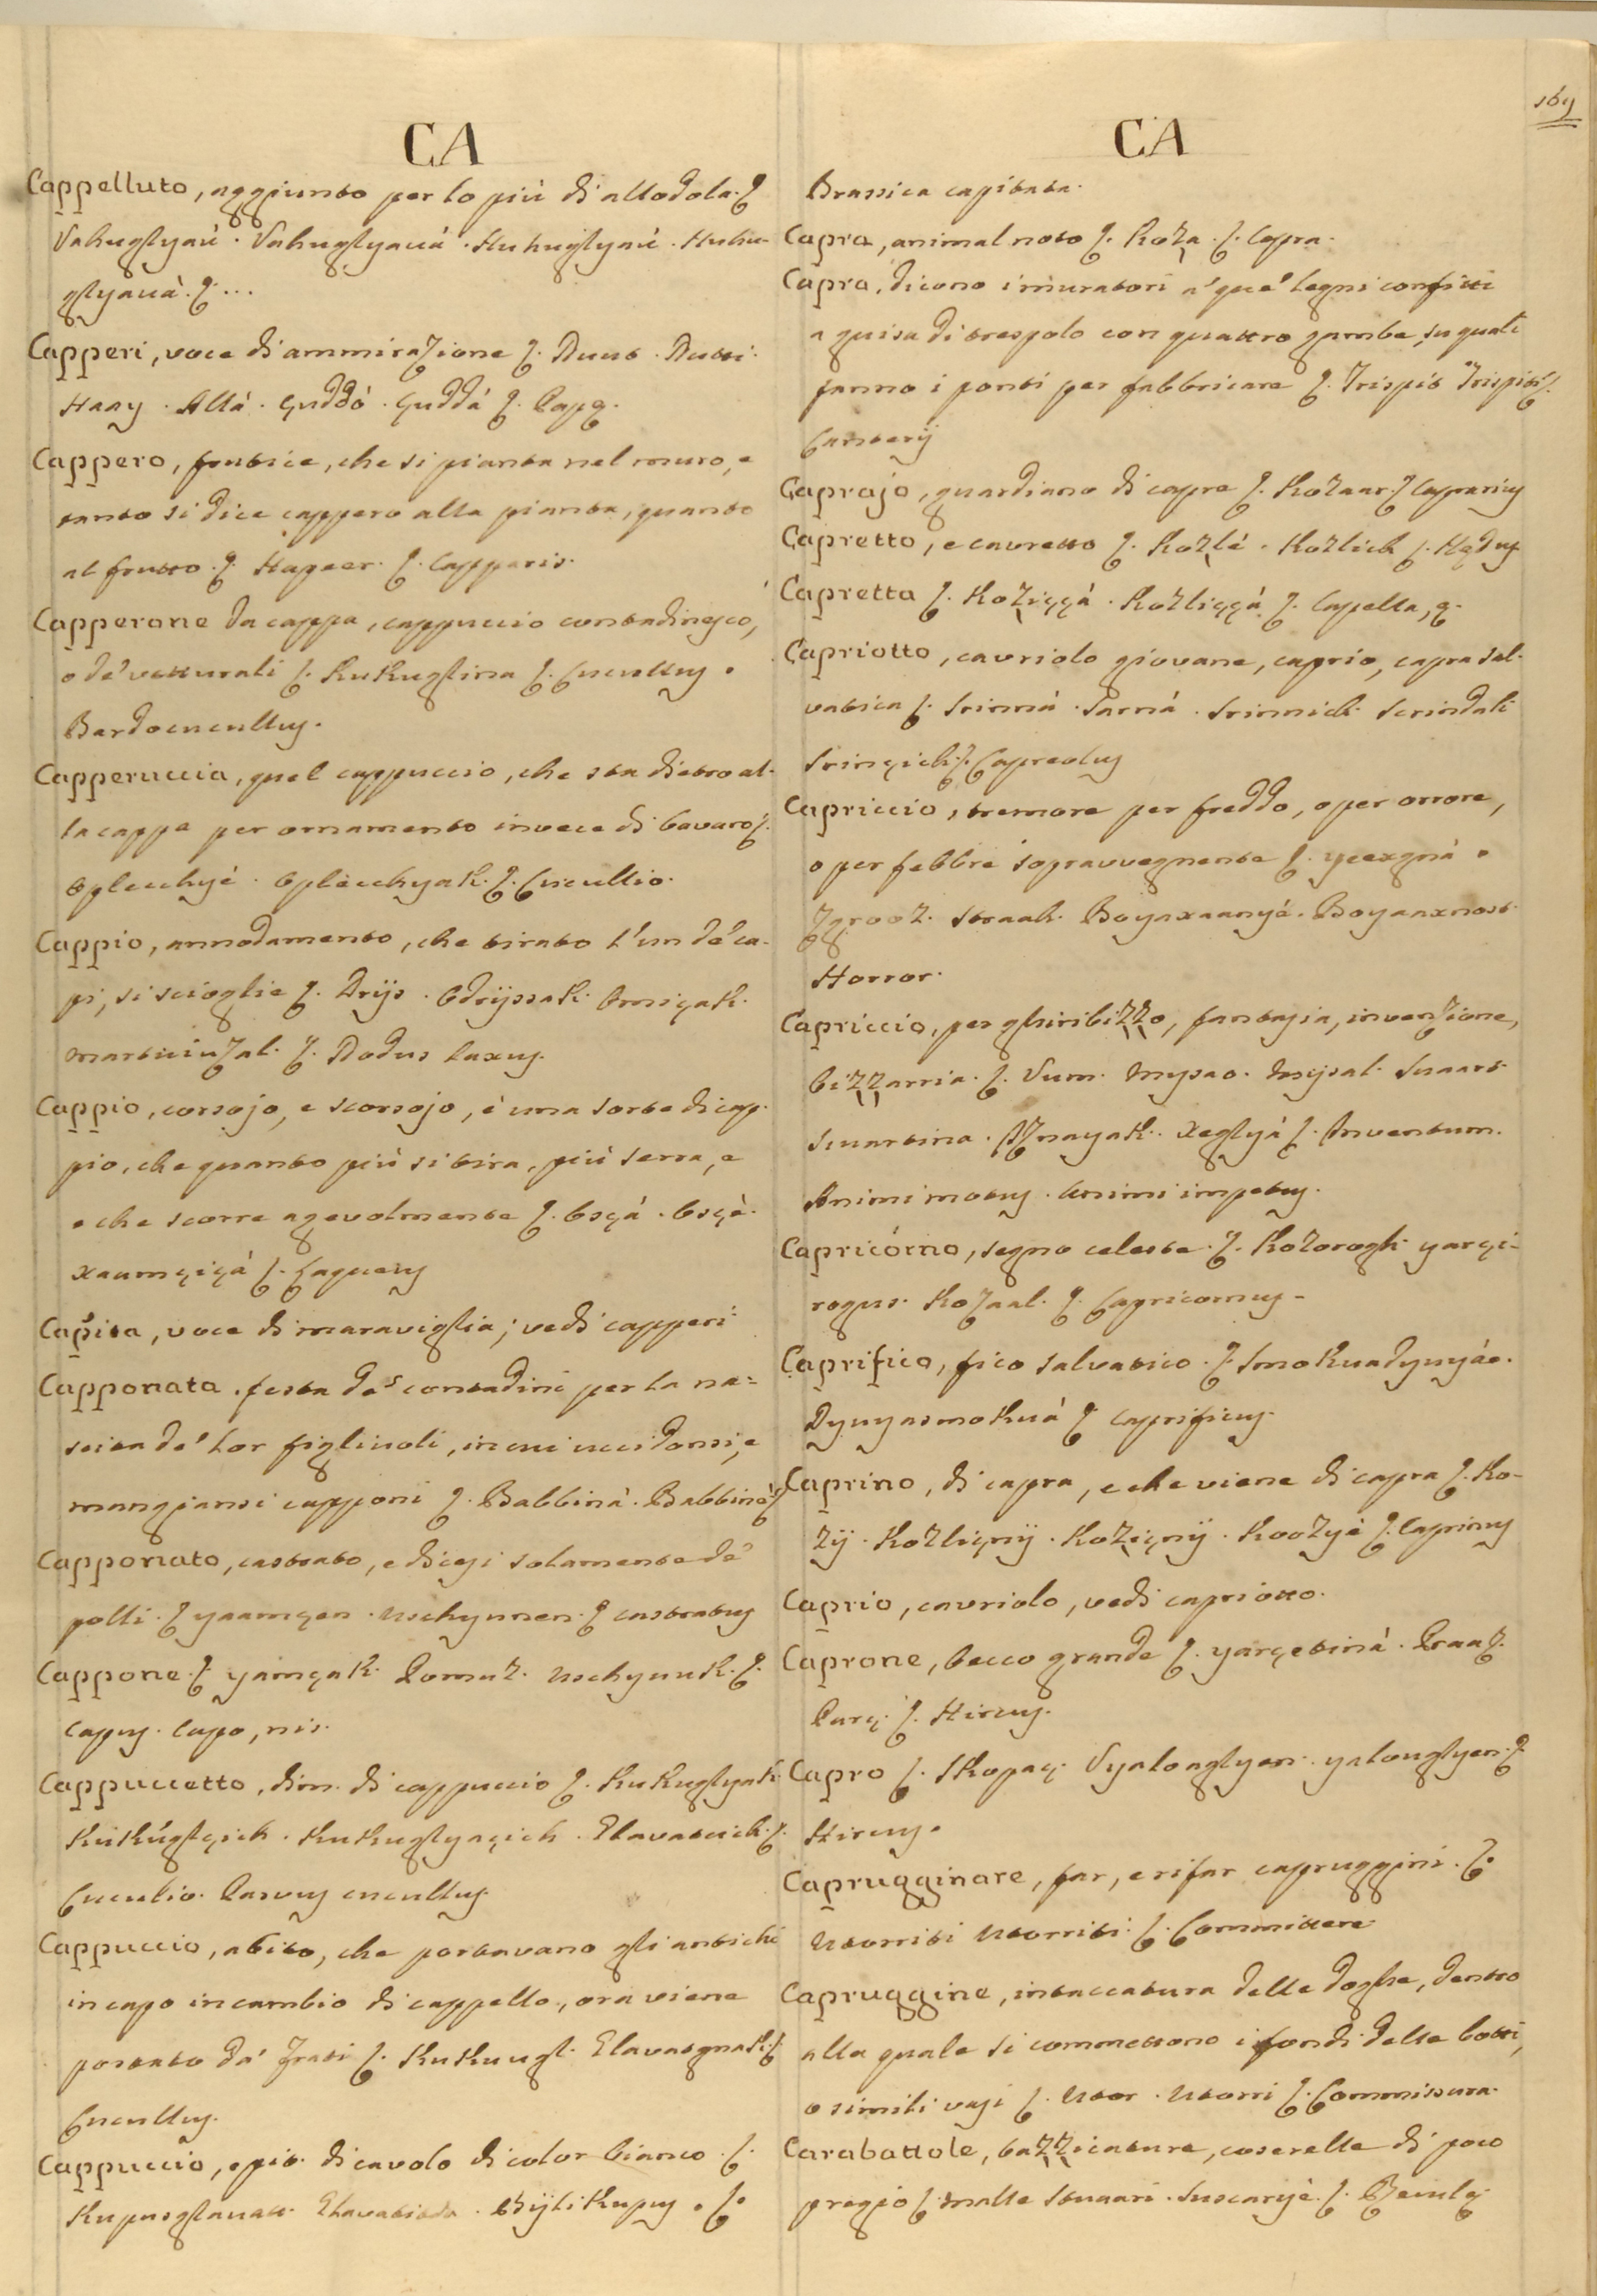 169
CA
Cappelluto, aggiunto per lo più di allodola. I.
Vahuglyaú. Vahuglyauá. Huhuglyaú. Huhu-
glyauà. L. ...
Capperi, voce di ammirazione I. Nuut. Nutti.
Haay. Allá. çuddó. çuddá L. Papę.
Cappero, frutice, che si pianta nel muro, e
tanto si dice cappero alla pianta, quanto
al frutto. I. Kapaar. L. Capparis.
Capperone da cappa, cappuccio contadinesco,
o de' vetturali I. Kukuglina L. Cucullus.
Bardocucullus.
Capperuccia, quel cappuccio, che sta dietro al-
la cappa per ornamento invece di bavaro I.
Oplecchyé. Oplecchyak. L. Cucullio.
Cappio, annodamento, che tirato l'un de' ca-
pi, si scioglie I. Drijs. Odrijssak. Omiçak.
martuiuzal. L. Nodus laxus.
Cappio, corsojo, e scorsojo, è una sorte di cap-
pio, che quanto più si tira, più serra, e
e che scorre agevolmente I. Osçá. Osçè.
xaumçiçá L. Laqueus
Cappita, voce di maraviglia; vedi capperi
Capponata, festa de' contadini per la na-
scita de' lor figliuoli, in cui uccidonsi, e
mangiansi capponi I. Babbinà. Babbinè L.
Capponato, castrato, e dicesi solamente de'
polli. I. yaamçen. uschyunen. L. castratus
Cappone. I. yamçak. Pomuz. uschyuuk. L.
Capus. Capo, nis.
Cappuccetto, dim. di cappuccio I. Kukuglyak
Kukúglçich. Kukuglyaçich. Glavatcich. L.
Cuculio. Parvus cucullus.
Cappuccio, abito, che portavano gli antichi
in capo in cambio di cappello, ora viene
portato da' frati I. Kukuugl. Glavatgnak. L.
Cucullus.
Cappuccio, epit. di cavolo di color bianco. I.
Kupusglauat. Bijlikupus. L.
CA
Brassica capitata.
Capra, animal noto I. Koza. L. Capra.
Capra, dicono i muratori a' que' legni confitti
a guisa di trespolo con quattro gambe, su quali
fanno i ponti per fabbricare I. Trispit Trispiti L.
Canterij
Caprajo, guardiano di capre I. Kozaar. L. Caprarius
Capretto, e cavretto I. Kozlé. Kozlich L. Hędus
Capretta I. Koziççá. Kozliççá L. Capella, ę.
Capriotto, cavriolo giovane, caprio, capra sal-
vatica I. Srinná. Sarná. Srinnich. Scrindali
Srinçich. L. Capreolus
Capriccio, tremore per freddo, o per orrore,
o per febbre sopravvegnente I. yeexgná.
Zgrooz. Straah. Boyaxaanyé. Boyaaxnost.
Horror.
Capriccio, per ghiribizzo, fantasia, invenzione,
bizzarria. I. Vum. Mysao. Mysal. Suaart.
Suartina. Iznayak. Xeglyá L. Inventum.
Animi motus. Animi impetus.
Capricórno, segno celeste. I. Kozorogh yarçi-
rogus. Kozaal. L. Capricornus.
Caprifico, fico salvatico. I. Smokuadyuyáe.
Dyuyasmokuá L. Caprificus.
Caprino, di capra, e che viene di capra I. Ko-
zij. Kozliçnij. Koziçnij. Koozyé L. Caprinus
Caprio, cavriolo, vedi capriotto.
Caprone, becco grande I. yarçetiná. Praaz.
Parç. L. Hircus.
Capro I. Skopaç. Vyaloaglyen. yalouglyen. L.
Hircus.
Caprugginare, far, e rifar capruggini. I.
Utorriti utorriti. L. Committere.
Capruggine, intaccatura delle doghe, dentro
alla quale si commettono i fondi delle botti,
o simili vasi I. Utor. Utorri L. Commissura.
Carabattole, bazzicature, coserelle di poco
pregio I. Malle stuaari. Suscaryé. L. Recule.